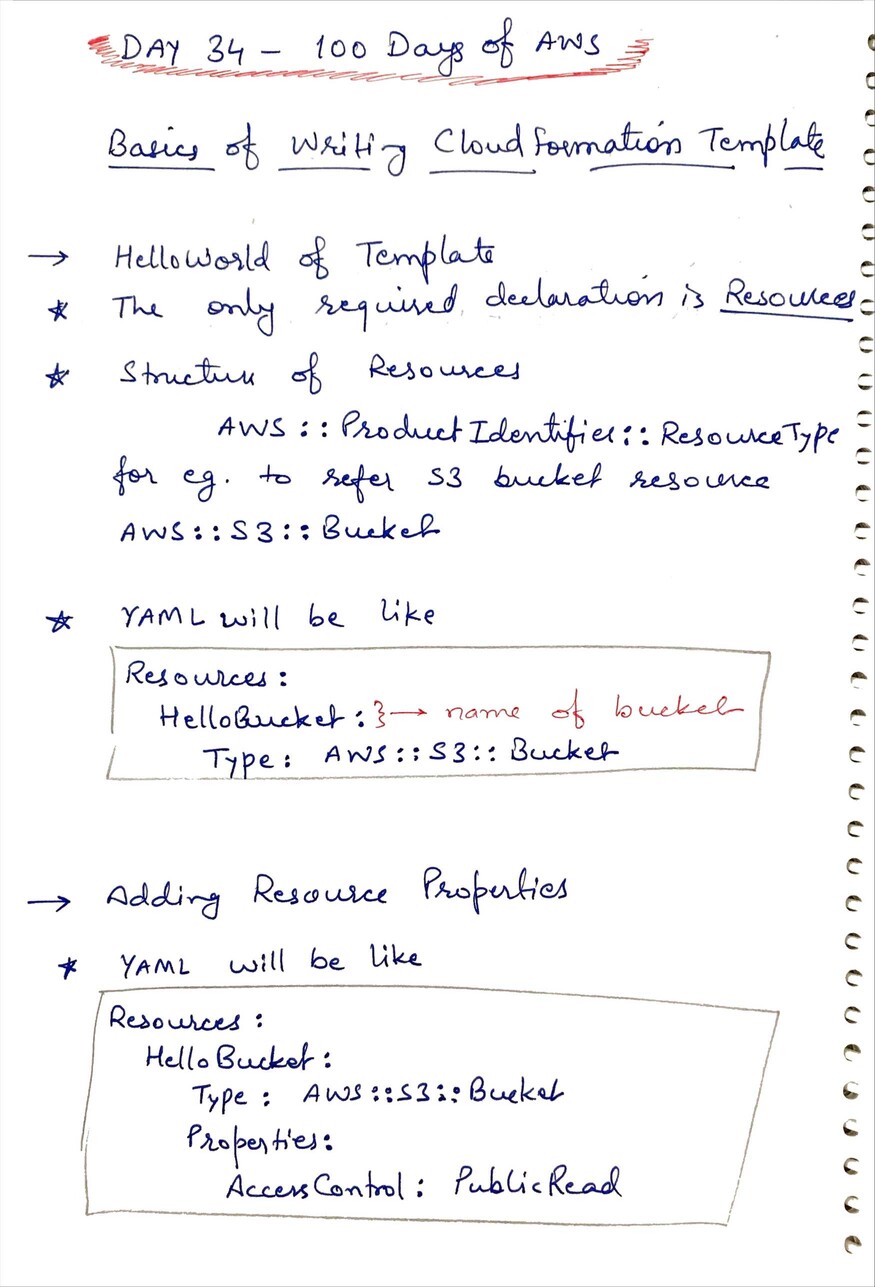 DAY 34 - 100 Days of AWS
Basics of Writing CloudFormation Template
→ HelloWorld of Template
* The only required declaration is Resources
* Structure of Resources
AWS::ProductIdentifier::ResourceType
for eg. to refer S3 bucket resource
AWS::S3::Bucket
* YAML will be like
Resources:
HelloBucket: }→ name of bucket
Type: AWS::S3::Bucket
→ Adding Resource Properties
* YAML will be like
Resources:
HelloBucket:
Type: AWS::S3::Bucket
Properties:
AccessControl: PublicRead